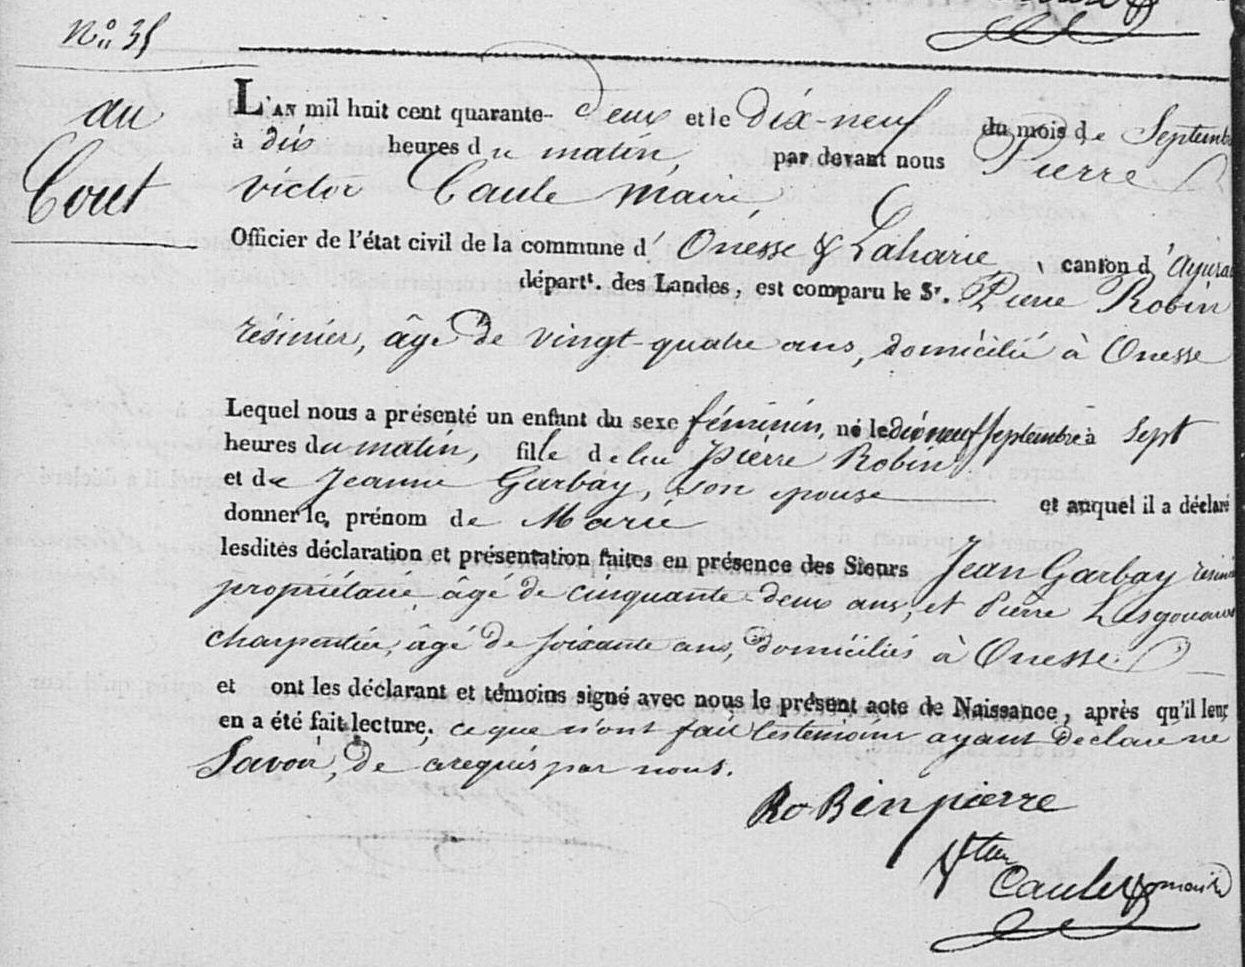 N° 35
au
Cout
L'AN mil huit cent quarante- deux et le dix-neuf du mois de Septembre
à dix heures du matin, par devant nous Pierre
victor Caule maire,
Officier de l'état civil de la commune d' Onesse & Laharie, canton d'
départt. des Landes, est comparu le Sr. Pierre Robin
résinier, âgé de vingt-quatre ans, domicilié à Onesse
Lequel nous a présenté un enfant du sexe féminin, né le dix neuf septembre à sept
heures du matin, fille de lui Pierre Robin
et de Jeanne Garbay, son epouse et auquel il a déclaré
donner le prénom de Marie
lesdites déclaration et présentation faites en présence des Sieurs Jean Garbay
propriétaire âgé de cinquante-deux ans, et Pierre
charpentier, âgé de soixante ans, domiciliés à Onesse.
et ont les déclarant et témoins signé avec nous le présent acte de Naissance, après qu'il leur
en a été fait lecture, ce que n'ont fait les temoins ayant declare ne
Savoir, de ce requis par nous.
RoBin pierre
Caule maire